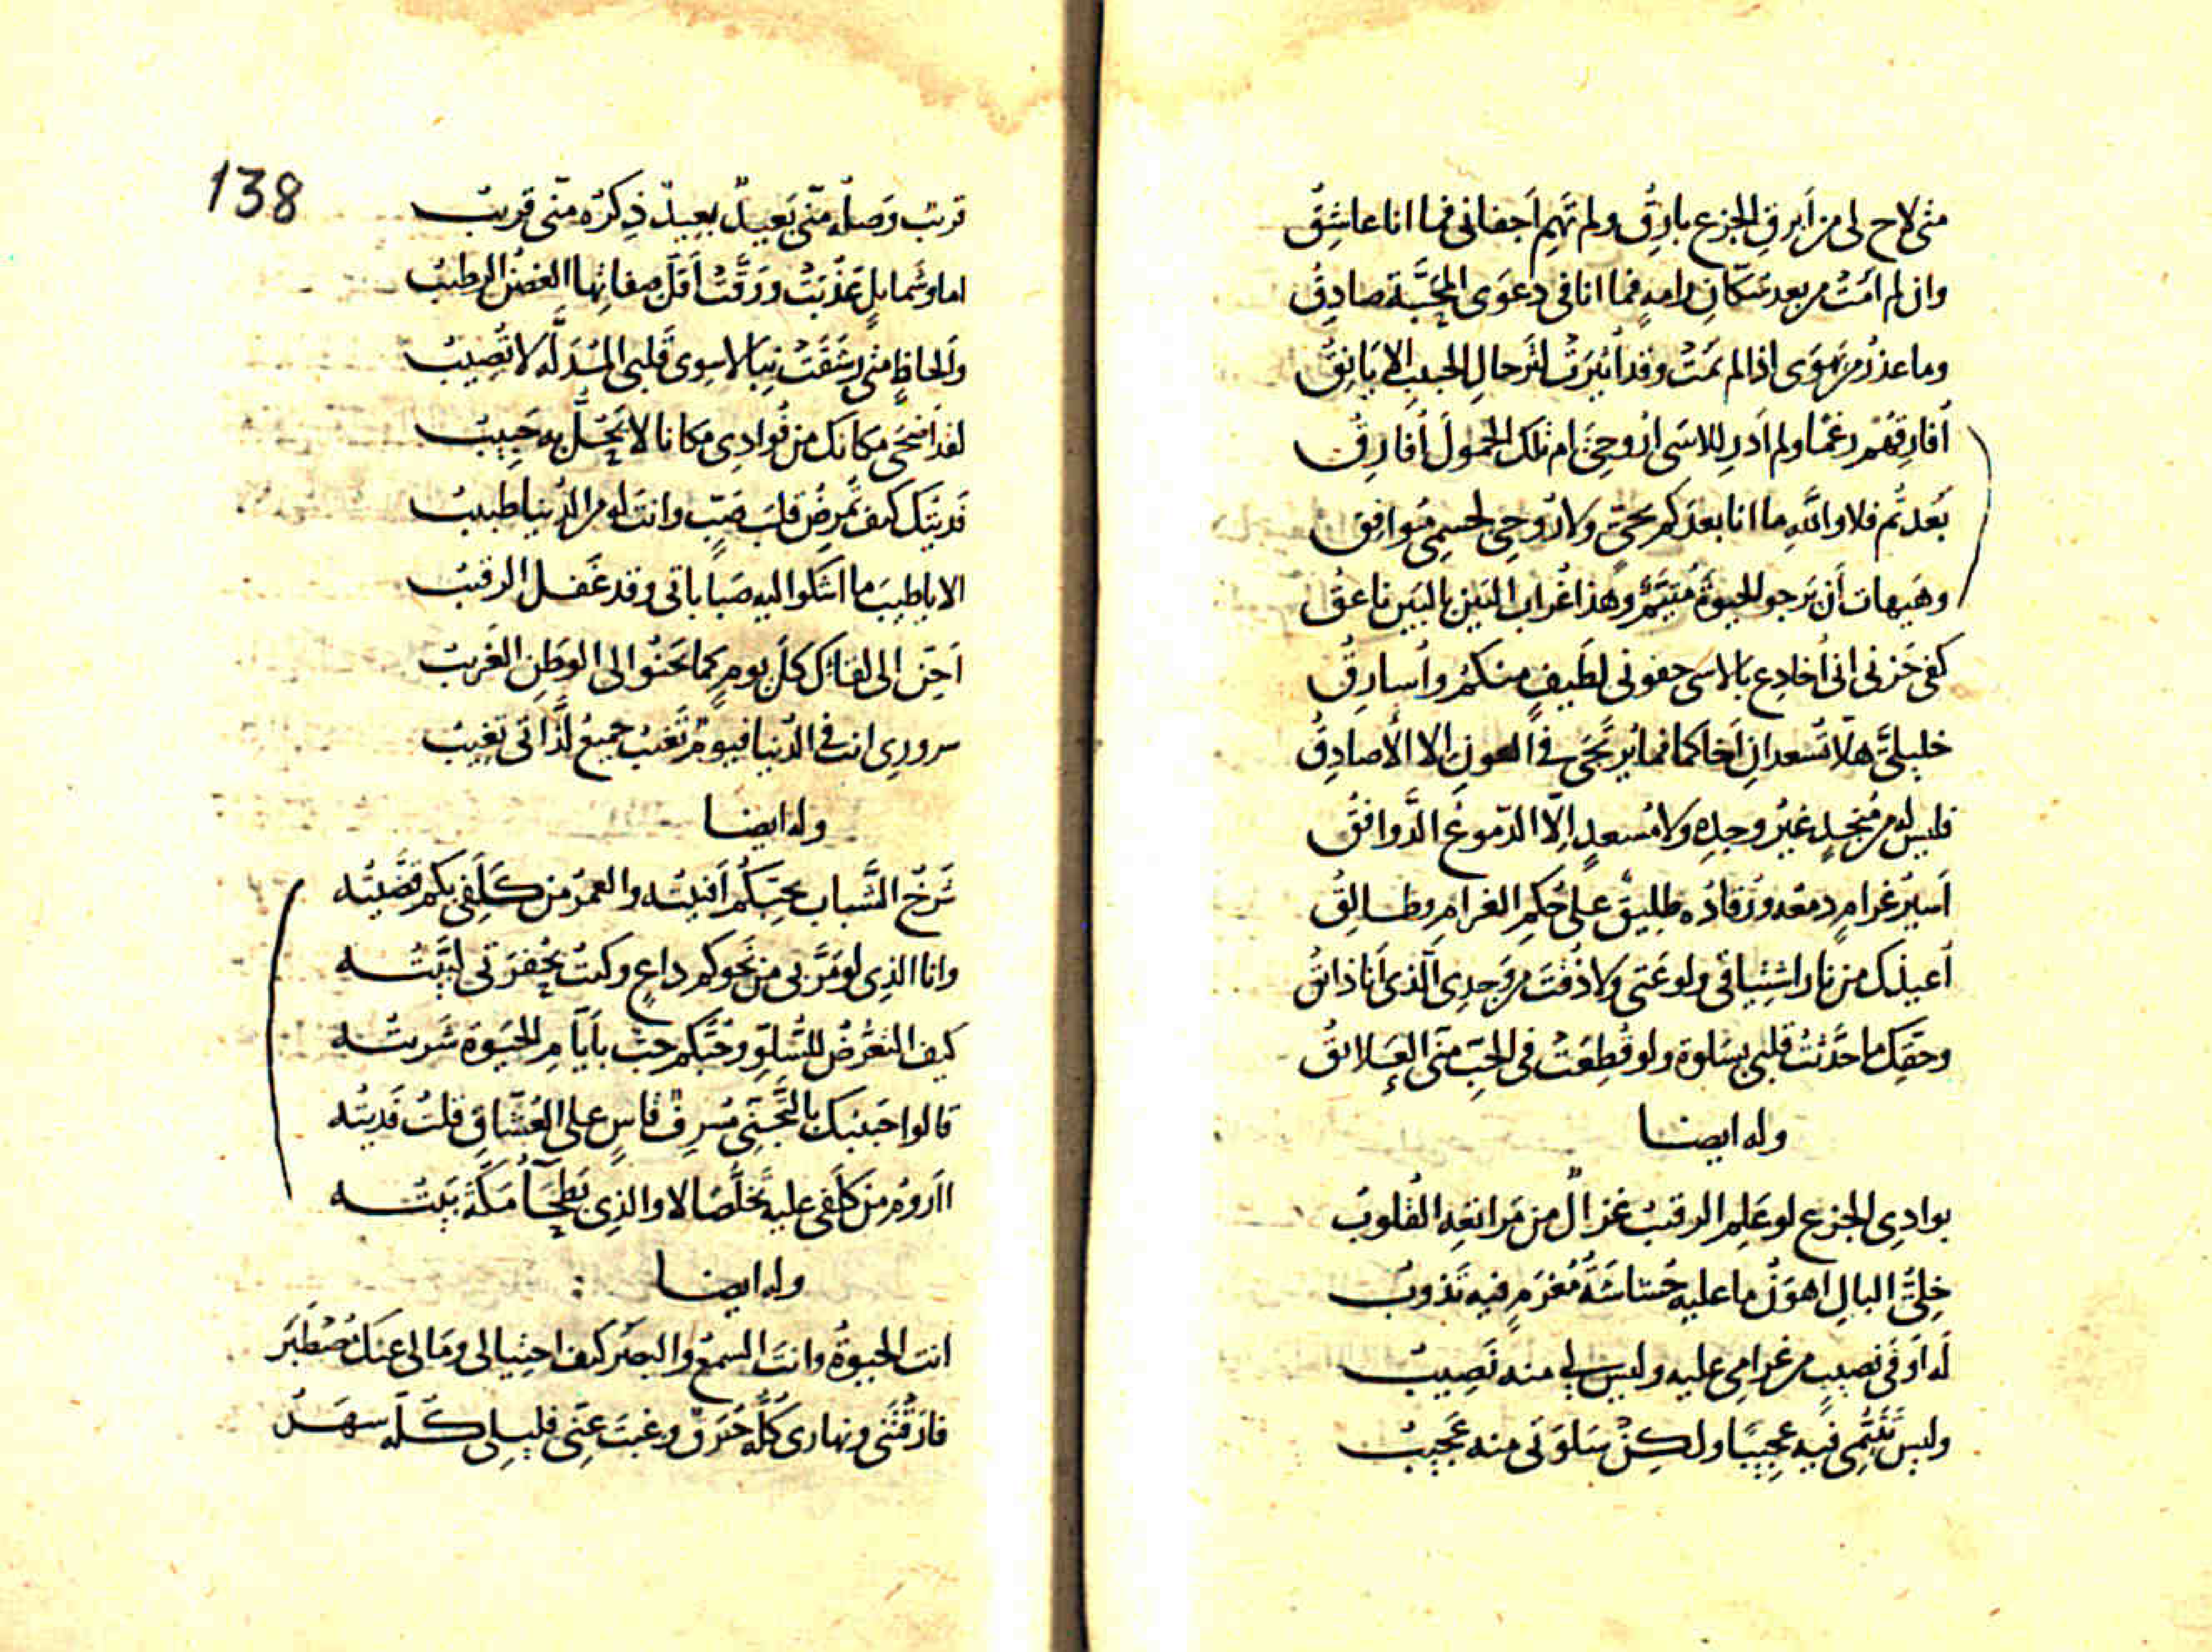 متى لاح لى من أبرق الجزع بارق ولم تهم أجفانى فما انا عاشق
وان لم أمت من بعد سكان رامة فما انا فى دعوى المحبة صادق
وما عذر من يهوى اذا لم يمت وقد أثيرت لترحال الحبيب الايانق
أفارقهم رغما ولم أدر للاسى أروحى ام تلك الحمول أفارق
بعدتم فلا والله ما انا بعدكم بحى ولا روحى لجسمى موافق
وهيهات أن يرجو الحيوة متيم وهذا غراب البين بالبين ناعق
كفى حزنى انى أخادع بالاسى جفونى لطيف منكم وأسارق
خليلى هلا تسعدان أخاكما فما يرتجى فى العون الا الأصادق
فليس له من منجد غير وجده ولا مسعد إلا الدموع الدوافق
أسير غرام دمعه ورقاده طليق على حكم الغرام وطالق
أعيذك من نار اشتياقى ولوعتى ولا ذقت من وجدى الذى أنا ذائق
وحقك ما حدثت قلبى بسلوة ولو قطعت فى الحب منى العلائق
وله ايضا
بوادى الجزع لو علم الرقيب غزال من مراتعه القلوب
خلى البال اهون ما عليه حشاشة مغرم فيه تذوب
له أوفى نصيب من غرامى عليه وليس لى منه نصيب
وليس تتيمى فيه عجيبا ولكن سلوتى منه عجيب
138
قريب وصله منى بعيد بعيد ذكره منى قريب
اما وشمايل عذبت ورقت أقل صفاتها الغصن الرطيب
وألحاظ متى رشقت نبالا سوى قلبى المدله لا تصيب
لقد أضحى مكانك من فوادى مكانا لا يحل به حبيب
فديتك كيف تمرض قلب صب وانت له من الدنيا طبيب
الا يا طيب ما اشكو اليه صباباتى وقد غفل الرقيب
أحن الى لقائك كل يوم كما يحنو الى الوطن الغريب
سرورى انت فى الدنيا فيوم تغيب جميع لذاتى تغيب
وله ايضا
شرخ الشباب بحبكم أفنيته والعمر من كلفى بكم قضيته
وانا الذى لو مر بى من نحوكم داع وكنت بحفرتى لبيته
كيف التعرض للسلو وحبكم حب بأيام الحيوة شريته
قالوا حبيبك بالتجنى مسرف قاس على العشاق قلت فديته
أأروم من كلفى عليه تخلصا لا والذى بطحاء مكة بيته
وله ايضا
انت الحيوة وانت السمع والبصر كيف احتيالى وما لى عنك مصطبر
فارقتنى ونهارى كله حرق وغبت عنى فليلى كله سهر